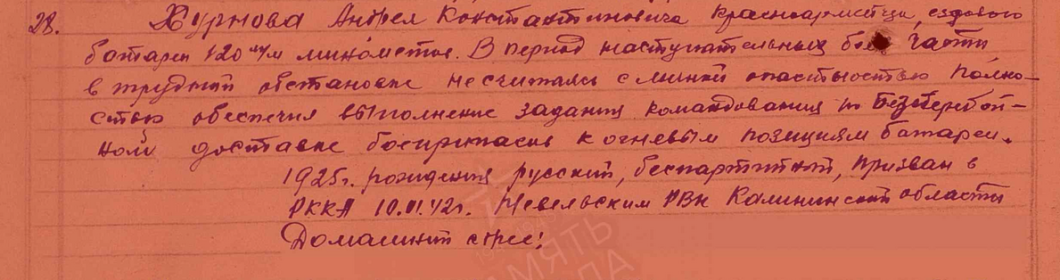 28. Журнова Андрея Константиновича красноармейца, ездового
батареи 120 м/м минометов. В период наступательных боев части
в трудной обстановке не считаясь с личной опастностью полно-
стью обеспечил выполнение задания командования по безперебой-
ной доставке боеприпасов к огневым позициям батареи.
1925г. рождения русский, беспартийный, призван в
РККА 10.VI.42г. Невельским РВК Калининской области
Домашний адрес:
ПАМЯТЬ